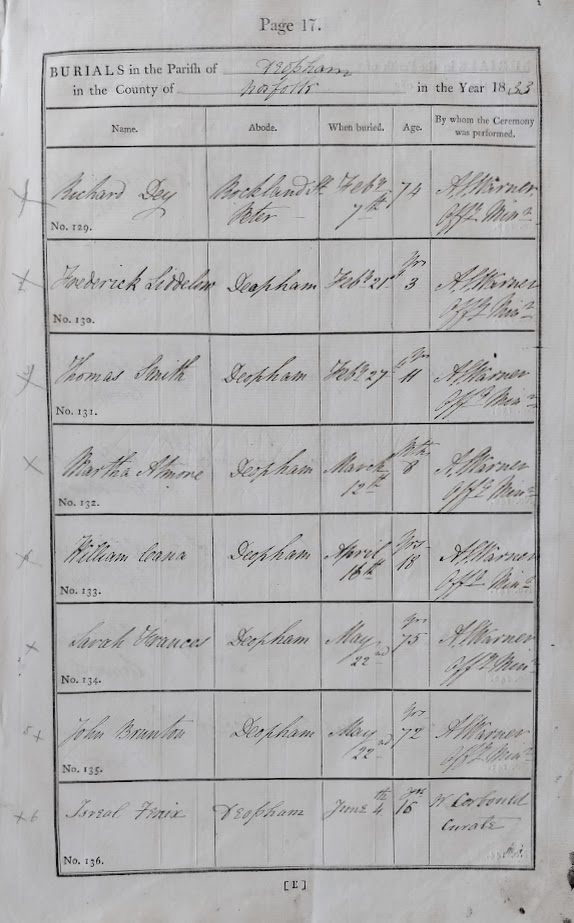 Page 17.
BURIALS in the Parish of Deopham
in the County of Norfolk in the Year 1833
Name. Abode. When buried. Age. By whom the Ceremony was performed.
Richard Dey Rockland St Febry 74 A Warner
Peter 7th Offg Minr
No. 129.
Frederick Liddelow Deopham Feby 21st Yrs 3 A Warner
Offg Minr
No. 130.
Thomas Smith Deopham Feby 27th Yrs 11 A Warner
Offg Minr
No. 131.
Martha Deopham March 8 A Warner
12th Offg Minr
No. 132.
William Cana Deopham April Yrs 18 A Warner
16th Offg Minr
No. 133.
Sarah Frances Deopham May Yrs 75 A Warner
22nd Offg Minr
No. 134.
John Brunton Deopham May Yrs 72 A Warner
22nd Offg Minr
No. 135.
Isreal Fenix Deopham June 4th yrs 16 W Corbould
Curate
No. 136.
[E]